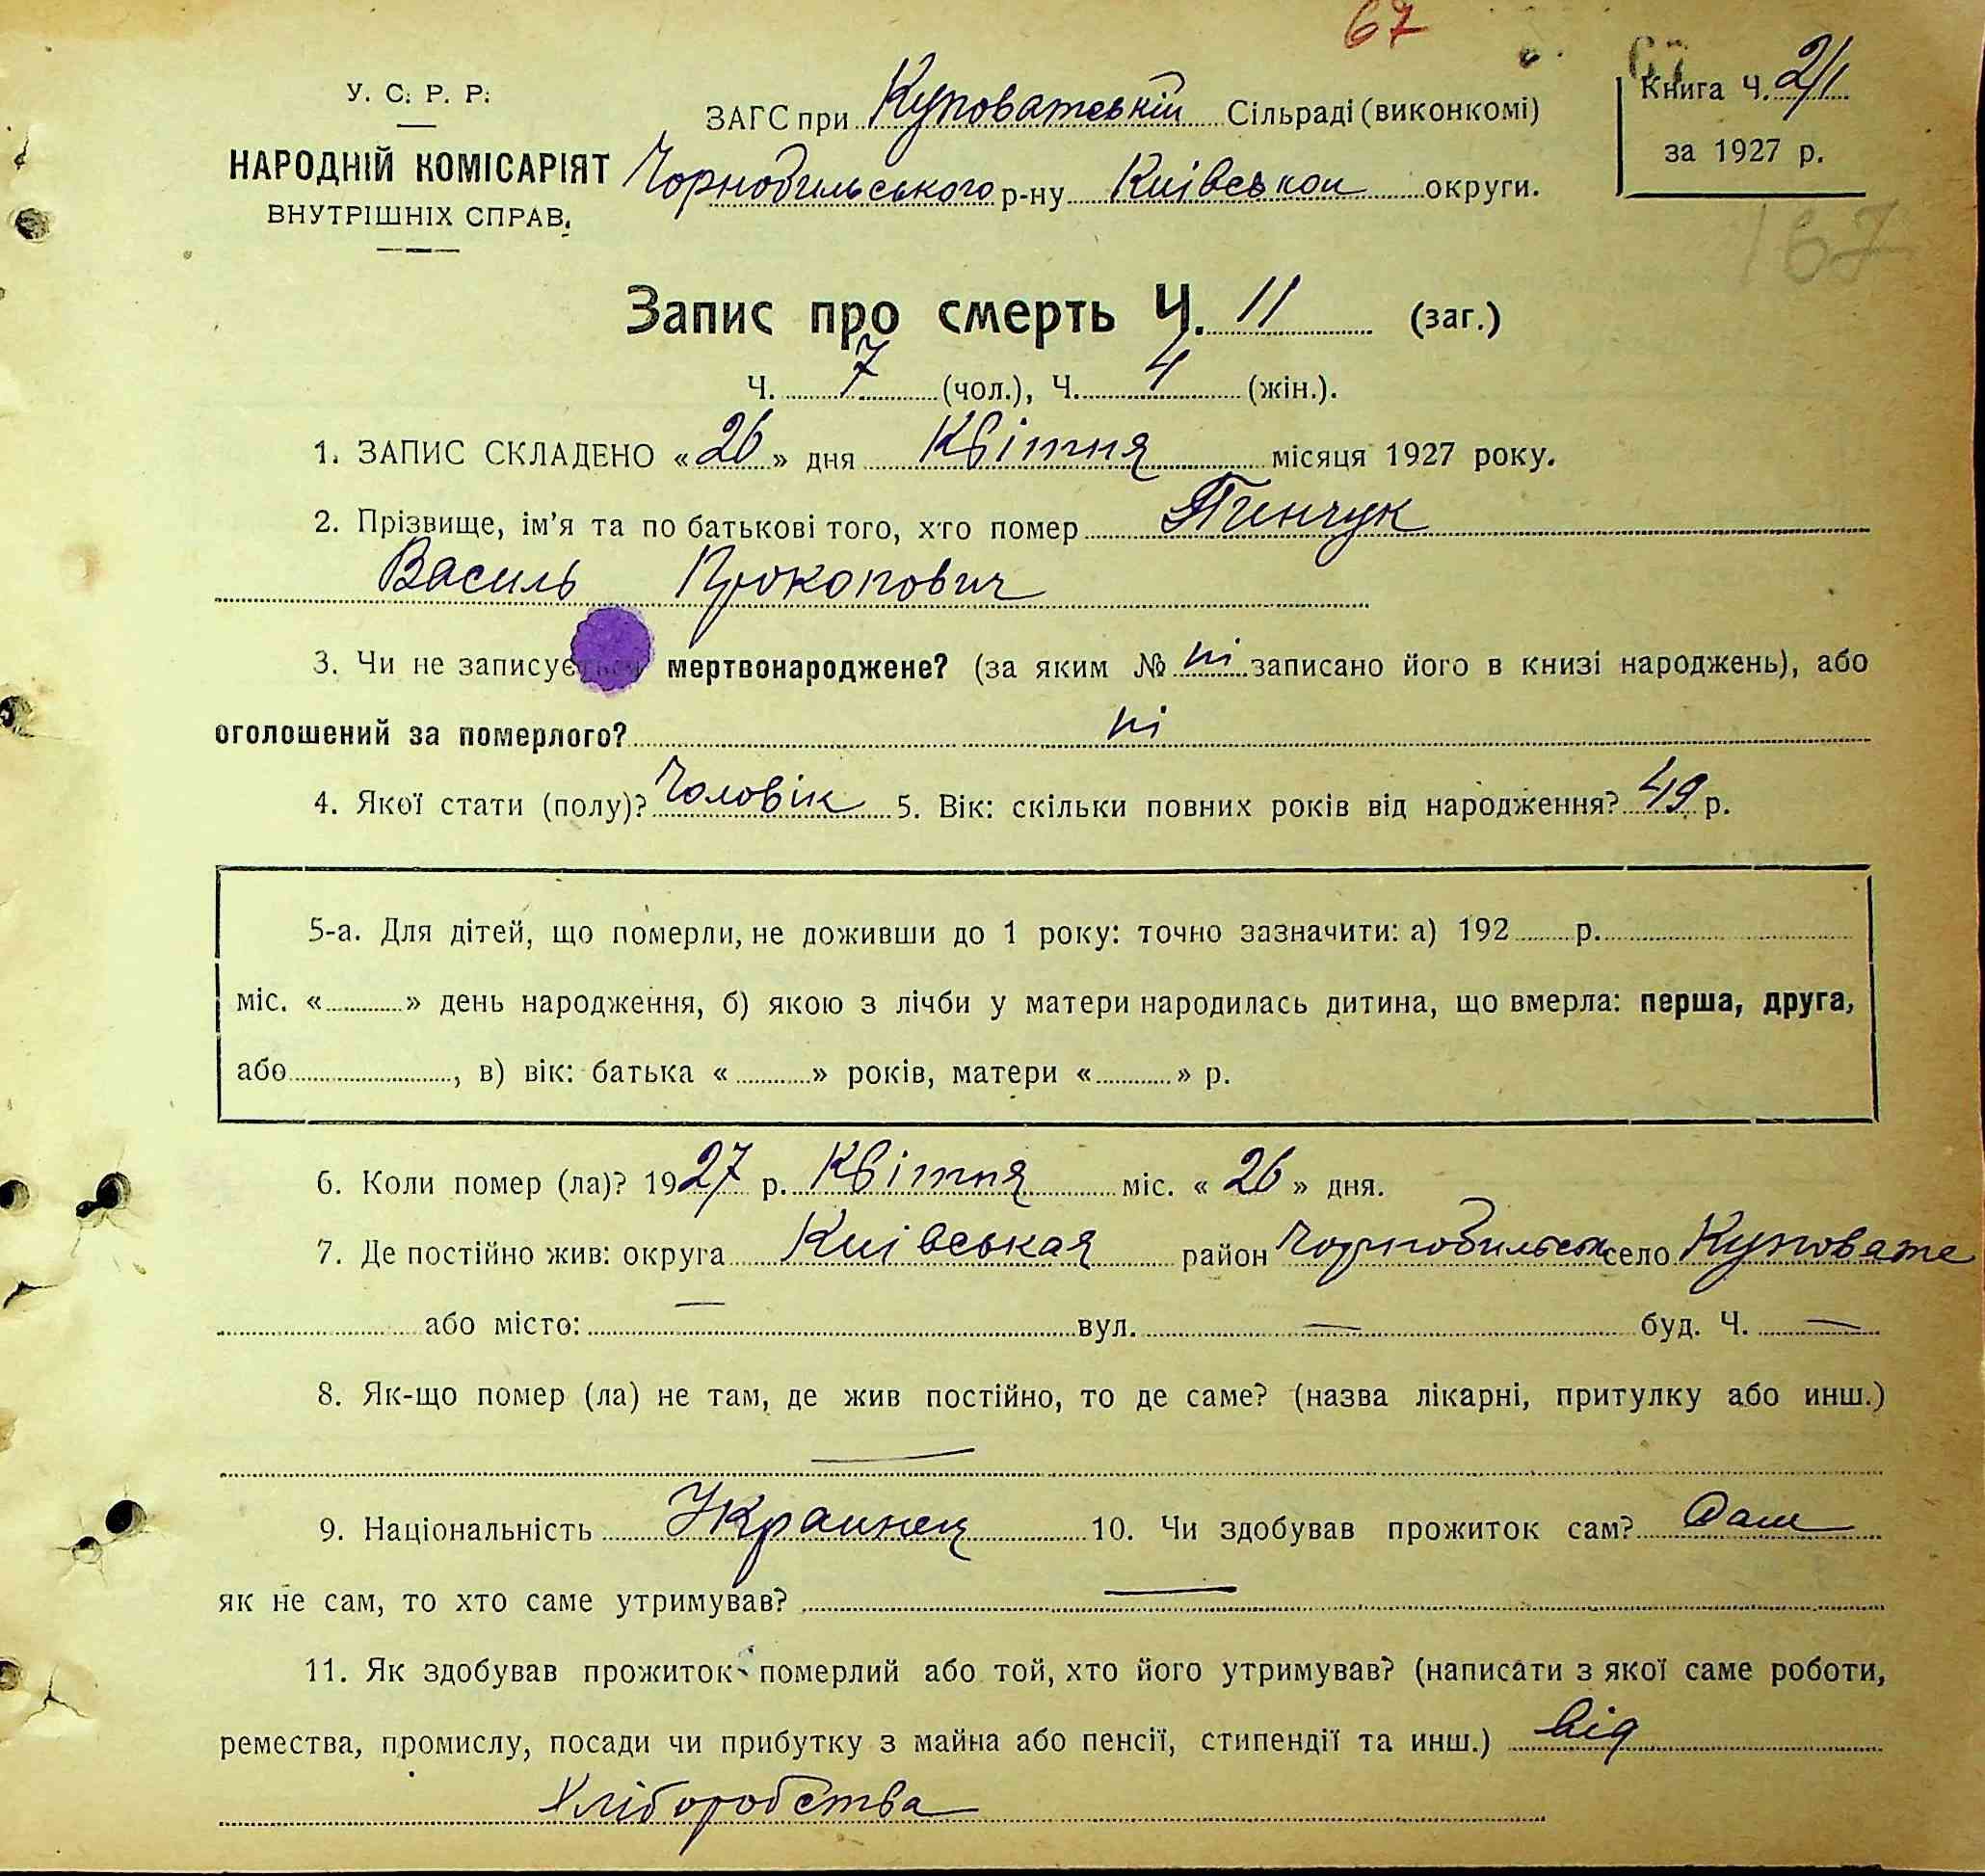 67
У. С. Р. Р.
НАРОДНІЙ КОМІСАРІЯТ
ВНУТРІШНІХ СПРАВ.
ЗАГС при Куповатській Сільраді (виконкомі)
Чорнобильського р-ну Київськои округи.
67
Книга Ч. 2/1
за 1927 р.
167
Запис про смерть Ч. 11 (заг.)
Ч. 7 (чол.), Ч. 4 (жін.).
1. ЗАПИС СКЛАДЕНО «26» дня Квітня місяця 1927 року.
2. Прізвище, ім'я та по батькові того, хто помер Пинчук
Василь Прокопович
3. Чи не записується мертвонароджене? (за яким № ні записано його в книзі народжень), або
оголошений за померлого? ні
4. Якої стати (полу)? Чоловік 5. Вік: скільки повних років від народження? 49 р.
5-а. Для дітей, що померли, не доживши до 1 року: точно зазначити: а) 192 р.
міс. « » день народження, б) якою з лічби у матери народилась дитина, що вмерла: перша, друга,
або , в) вік: батька « » років, матери « » р.
6. Коли помер (ла)? 1927 р. Квітня міс. «26» дня.
7. Де постійно жив: округа Київськая район Чорнобильськ село Куповате
або місто: — вул. — буд. Ч. —
8. Як-що помер (ла) не там, де жив постійно, то де саме? (назва лікарні, притулку або инш.)
—
9. Національність Украинец 10. Чи здобував прожиток сам? Сам
як не сам, то хто саме утримував? —
11. Як здобував прожиток померлий або той, хто його утримував? (написати з якої саме роботи,
ремества, промислу, посади чи прибутку з майна або пенсії, стипендії та инш.) від
хліборобства